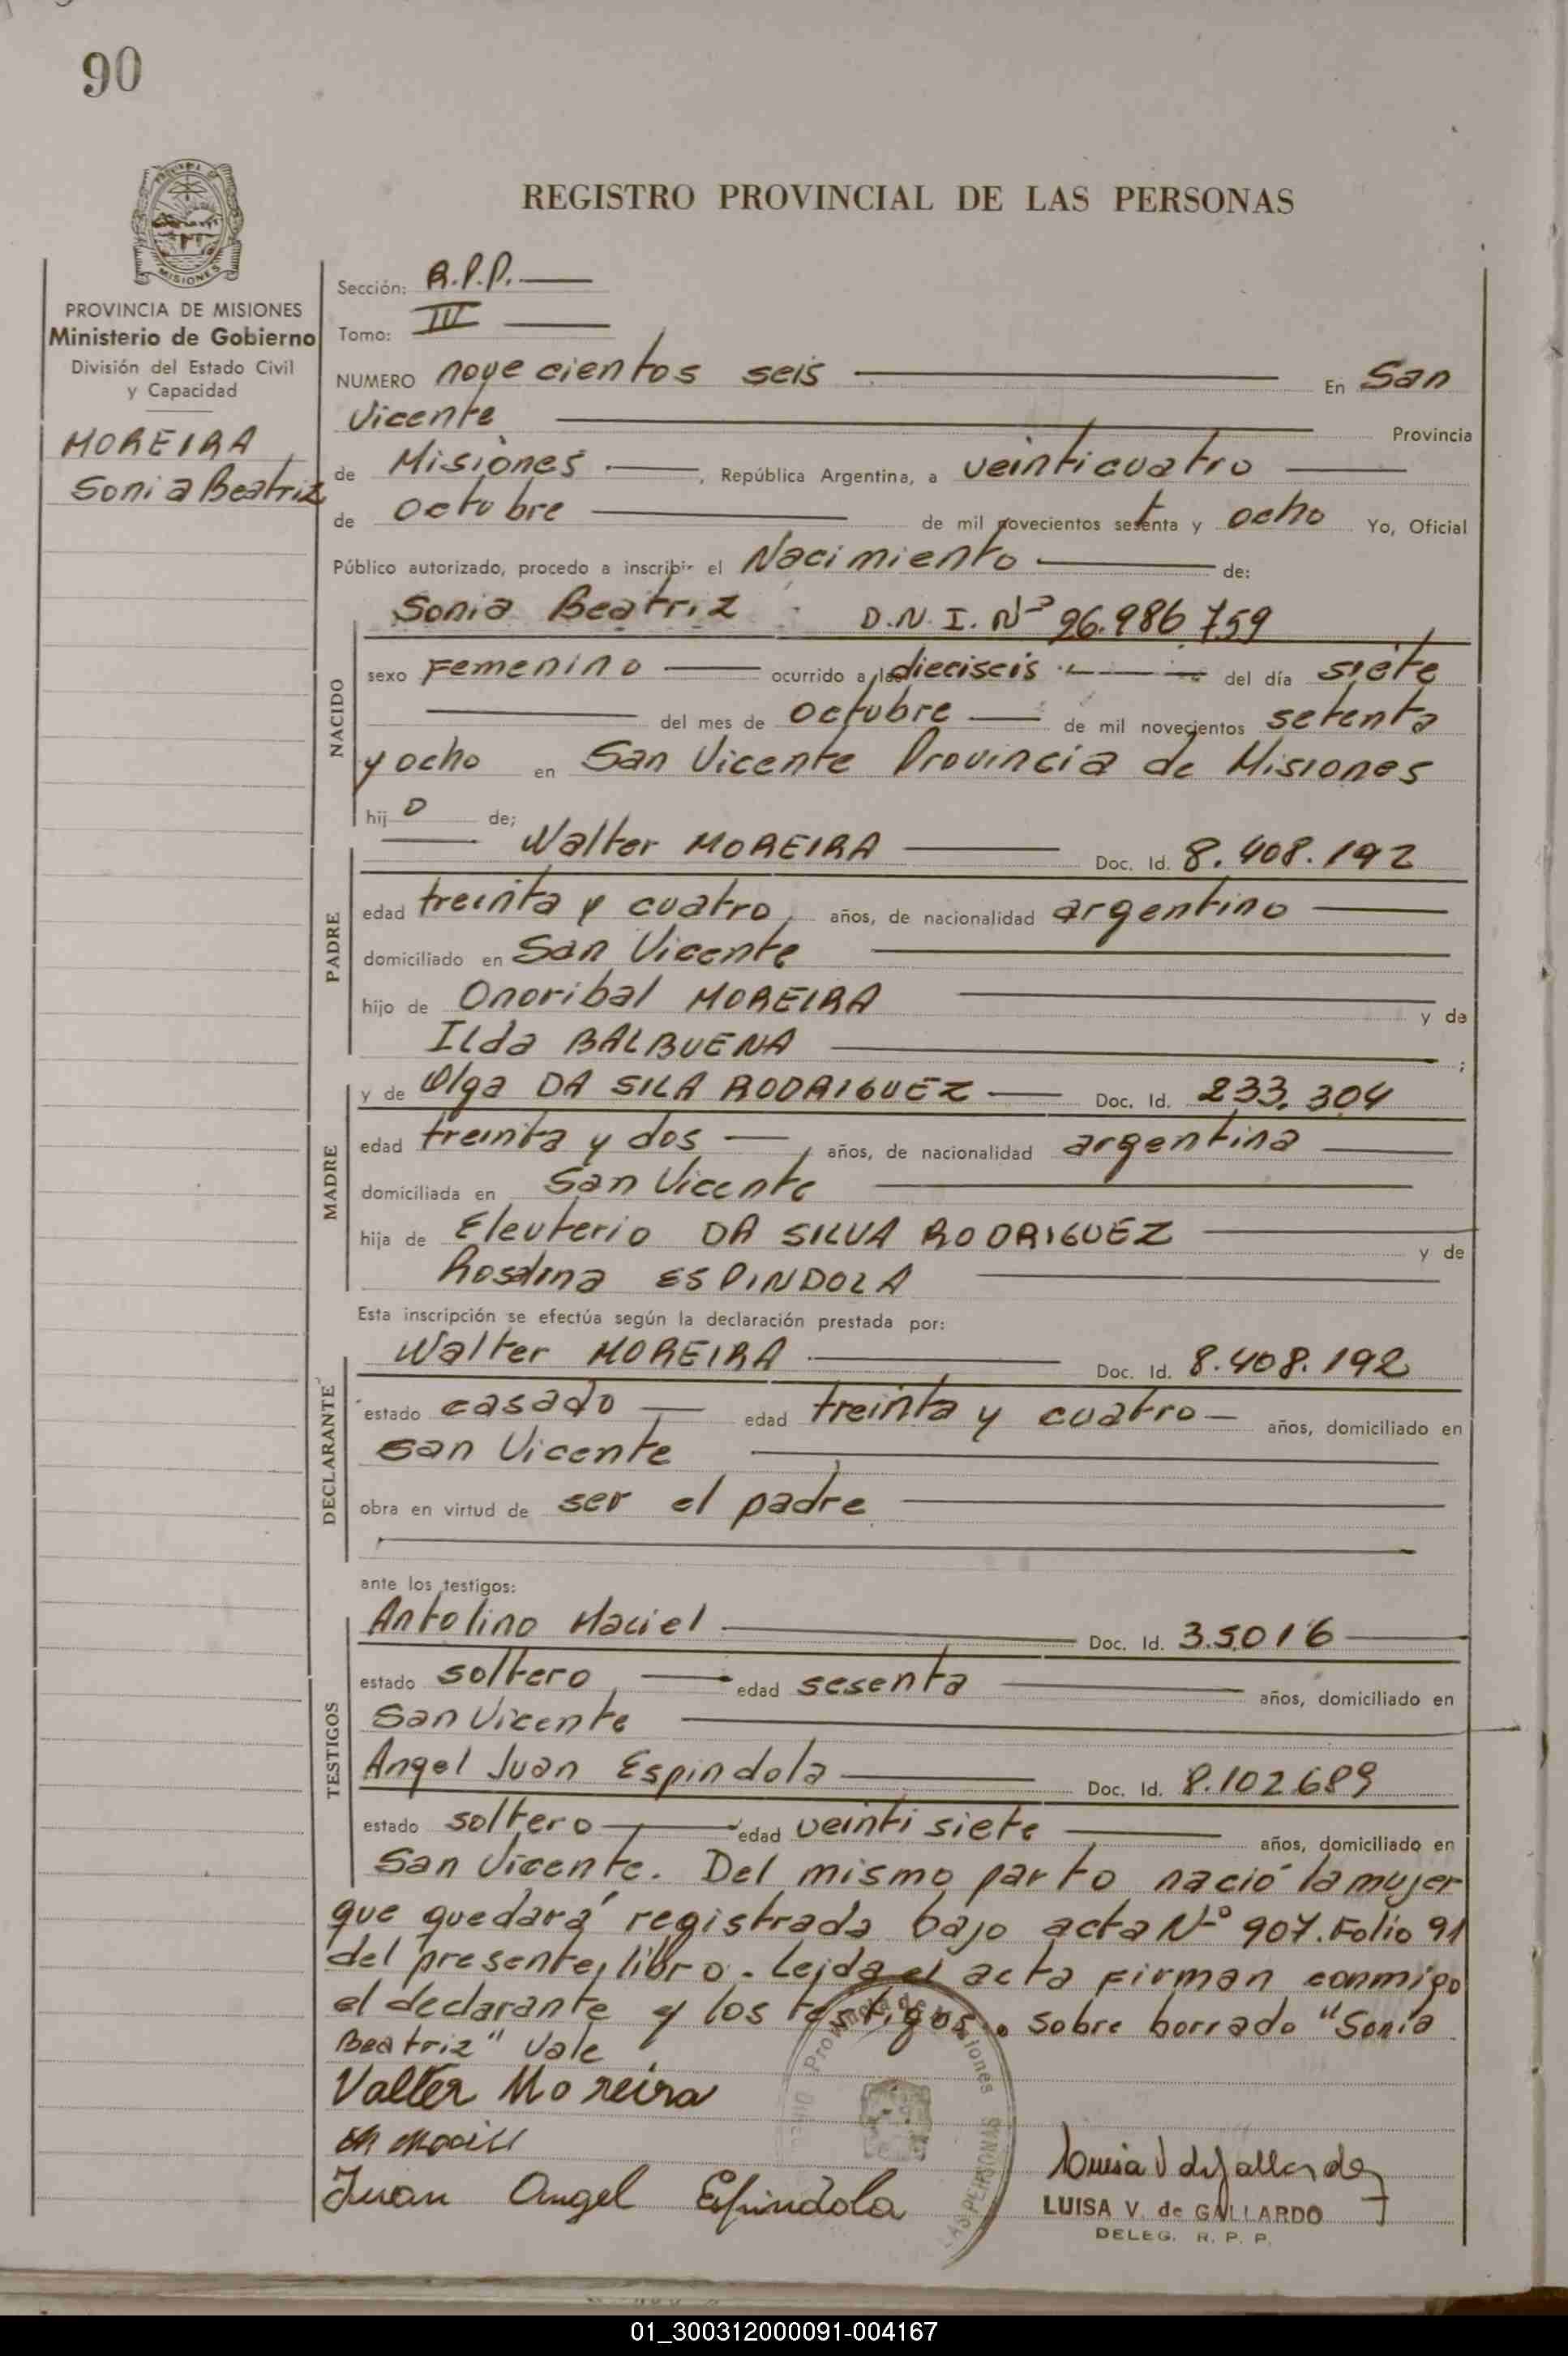 90
REGISTRO PROVINCIAL DE LAS PERSONAS
MISIONES
PROVINCIA DE MISIONES
Ministerio de Gobierno
División del Estado Civil
y Capacidad
MOREIRA
Sonia Beatriz
Sección: R.P.P.
Tomo: III
NUMERO novecientos seis En San
Vicente Provincia
de Misiones, República Argentina, a veinticuatro
de octubre de mil novecientos setenta y ocho Yo, Oficial
Público autorizado, procedo a inscribir el Nacimiento de:
Sonia Beatriz D.N.I. Nº 26.986.759
NACIDO
sexo Femenino ocurrido a las dieciseis del día siete
del mes de octubre de mil novecientos setenta
y ocho en San Vicente Provincia de Misiones
hij o de;
PADRE
Walter MOREIRA Doc. Id. 8.408.192
edad treinta y cuatro años, de nacionalidad argentino
domiciliado en San Vicente
hijo de Onoribal MOREIRA y de
Ilda BALBUENA ;
MADRE
y de Olga DA SILA RODRIGUEZ Doc. Id. 233.304
edad treinta y dos, años, de nacionalidad argentina
domiciliada en San Vicente
hija de Eleuterio DA SILVA RODRIGUEZ y de
Rosalina ESPINDOLA
Esta inscripción se efectúa según la declaración prestada por:
DECLARANTE
Walter MOREIRA Doc. Id. 8.408.192
estado casado edad treinta y cuatro años, domiciliado en
San Vicente
obra en virtud de ser el padre
ante los testigos:
TESTIGOS
Antolino Maciel Doc. Id. 3.5.016
estado soltero edad sesenta años, domiciliado en
San Vicente
Angel Juan Espindola Doc. Id. 8.102.689
estado soltero edad veinti siete años, domiciliado en
San Vicente. Del mismo parto nació la mujer
que quedará registrada bajo acta Nº 907. Folio 91
del presente libro. Leida el acta firman conmigo
el declarante y los testigos. Sobre borrado "Sonia
Beatriz" Vale
Valter Moreira
Juan Angel Espindola
Provincia de Misiones
LAS PERSONAS
Luisa V de Gallardo
LUISA V. de GALLARDO
DELEG. R. P. P.
01_300312000091-004167